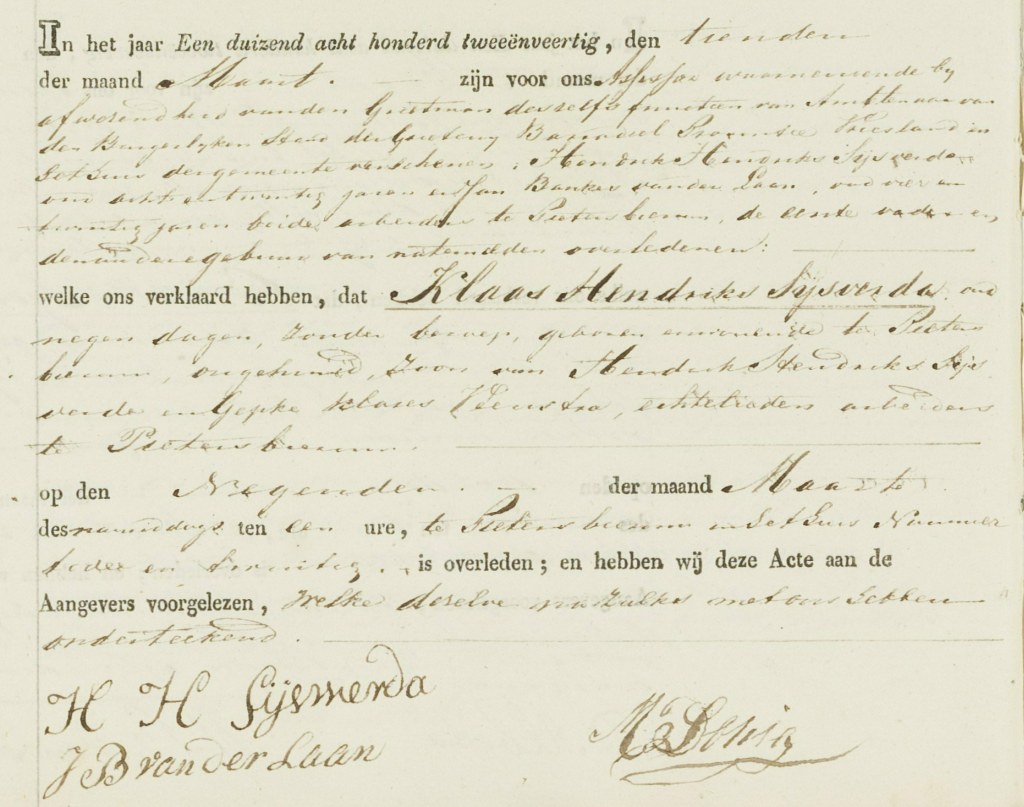 In het jaar Een duizend acht honderd tweeënveertig, den tienden
der maand Maart. zijn voor ons Assessor waarnemende by
afwezendheid van den Grietman deszelfs functien van Ambtenaar van
den Burgerlyken Stand der Grieteny Barradeel Provincie Vriesland in
het huis der gemeente verschenen; Hendrik Hendriks Sijsverda
oud acht en twintig jaren en Jan Baukes van der Laan, oud vier en
twintig jaren beide arbeiders te Pietersbierum, de eerste vader en
den andere gebuur van natemelden overledenen:
welke ons verklaard hebben, dat Klaas Hendriks Sijsverda oud
negen dagen, zonder beroep, geboren en wonende te Pieters
bierum, ongehuwd, zoon van Hendrik Hendriks Sijs
verda en Gepke Klases Veenstra, echtelieden arbeiders
te Pietersbierum.
op den Negenden der maand Maart
des namiddags ten een ure, te Pietersbierum in het huis Nummer
en twintig. is overleden; en hebben wij deze Acte aan de
Aangevers voorgelezen, welke dezelve met ons hebben
onderteekend.
H H Sijswerda
J B van der Laan